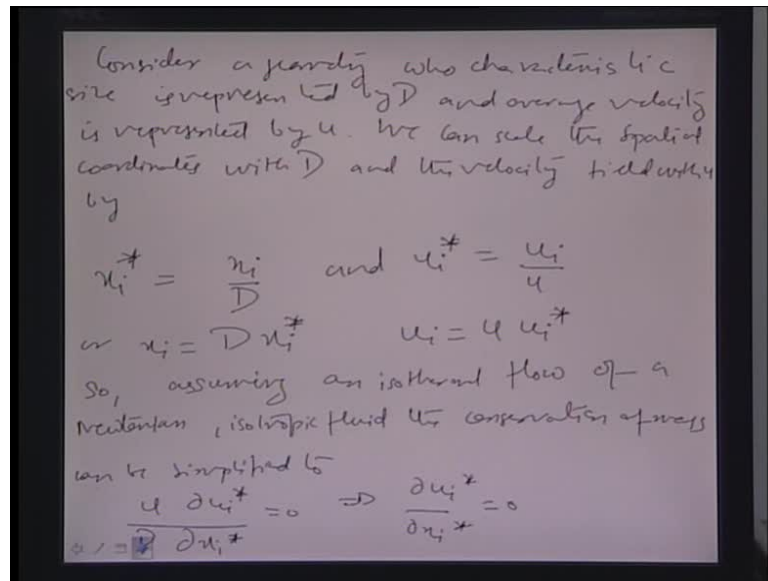 Consider a geometry who characteristic
size is represented by D and average velocity
is represented by u. We can scale the spatial
coordinates with D and the velocity field with u
by
x_i^* = x_i / D and u_i^* = u_i / u
or x_i = D x_i^* u_i = u u_i^*
So, assuming an isothermal flow of a
Newtonian, isotropic fluid the conservation of mass
can be simplified to
u ∂u_i^* / D ∂x_i^* = 0 ⇒ ∂u_i^* / ∂x_i^* = 0